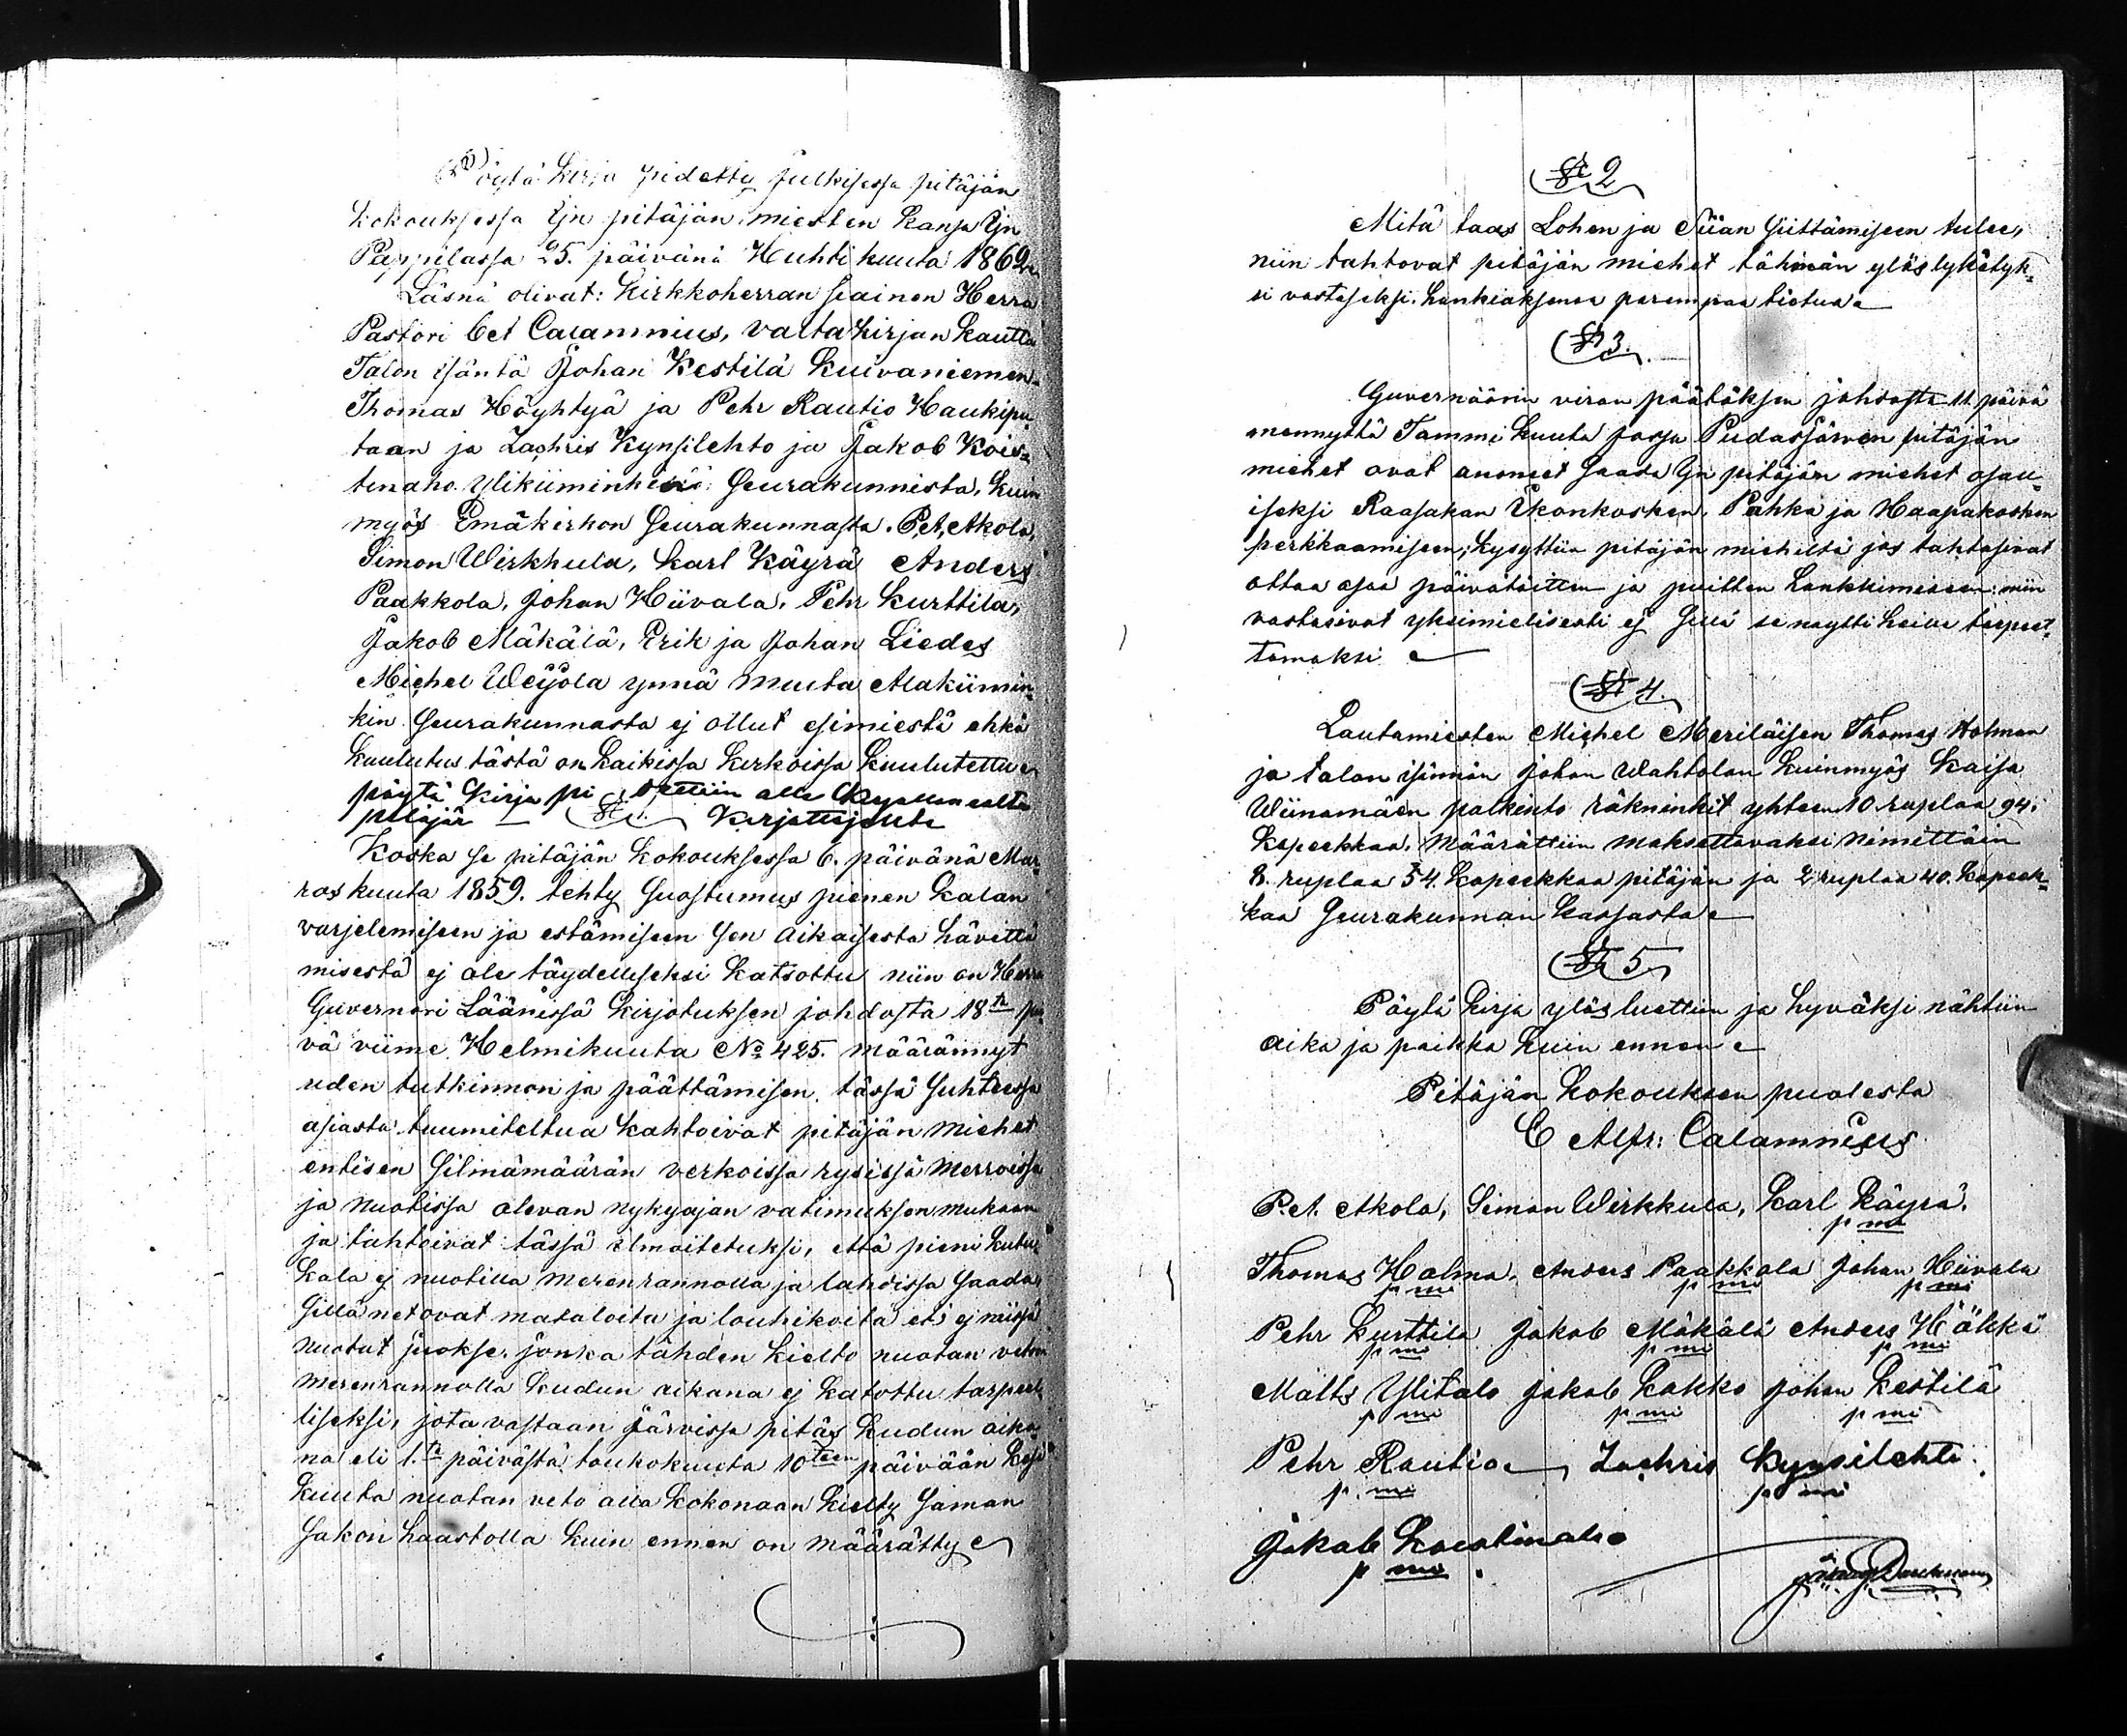 Pöytä Kirja pidetty Julkisessa pitäjän
kokouksessa Ijn pitäjän miesten kansa Ijn
Pappilassa 25. päivänä Huhtikuuta 1862
Läsnä olivat: Kirkkoherran siainen Herra
Pastori Calamnius, valta kirjan kautta
Talon isäntä Johan Kestilä Kuivaniemen
Thomas Höyhtyä ja Pehr Rautio Haukipu
taan ja Zachris Kynsilehto ja Jakob Kois=
tenaho Ylikiiminkin Seurakunnista, kuin
myös Emäkirkon Seurakunnasta. P.A. Akola,
Simon Wirkkula, Karl Käyrä Anders
Paakkola, Johan Hiivala, Pehr Kurttila,
Jakob Mäkälä, Erik ja Johan Liedes
Michel Weijola ynnä muita Alakiimin
kin Seurakunnasta ej ollut esimiestä ehkä
kuulutus tästä on kaikissa kirkoissa kuulutettu
pöytä kirja pi dettiin alla
pitäjän § 1. Kirjoitus
Koska se pitäjän kokouksessa 6. päivänä Mar
ras kuuta 1859. tehty suostumus pienen kalan
varjelemiseen ja estämiseen sen aikaisesta hävittä
misestä ej ole täydelliseksi katsottu niin on Herra
Guvernöri Läänissä kirjotuksen johdosta 18ta päi
vä viime Helmikuuta No 425. määrännyt
uden tutkinnon ja päättämisen. tässä suhteessa
asiasta tuumiteltua kahtoivat pitäjän miehet
entisen silmämäärän verkoissa rysissä merroissa
ja nuotissa olevan nykyajan vatimuksen mukaan
ja tahtoivat tässä ilmoitetuksi, että pieni kutu
kala ej nuotilla merenrannolla ja lahdissa saada
sillä net ovat mataloita ja louhikoita ei ej niissä
nuotat juokse. jonka tähden kielto nuotan veton
merenrannolla kudun aikana ej katottu tarpeel
liseksi, jota vastaan järvissä pitäs kudun aika
na eli 1.tä päivästä toukokuuta 10teen päivään kesä
kuuta nuotan veto olla kokonaan kielty saman
sakon haastolla kuin ennen on määrätty
§ 2
Mitä taas Lohen ja Siian siittämiseen tulee,
niin tahtovat pitäjän miehet tähmän ylös lykätyk=
si vastaseksi hankiaksensa parempaa tietua
§ 3.
Guvernöörin viran päätöksen johdosta 11 päivä
mennyttä Tammi kuuta jossa Pudasjärven pitäjän
miehet ovat anoneet saada Ijn pitäjän miehet osau=
iseksi Raasakan Ukonkosken, Pahka ja Haapakosken
perkkaamiseen; kysyttiin pitäjän miehiltä jos tahtosivat
ottaa osaa päivätöitten ja puitten hankkimiseen: niin
vastasivat yksimielisesti ej sillä se näytti heille tarpeet=
tomaksi
§ 4.
Lautamiesten Michel Meriläisen Thomas Holman
ja talon isännän Johan Wahtolan kuinmyös Kaisa
Wiinamäen palkinto räkninkit yhteen 10 ruplaa 94.
kopeekkaa, määrättiin maksettavaksi nimittäin
8. ruplaa 54. kopeekkaa pitäjän ja 2 ruplaa 40. kopeek=
kaa Seurakunnan kassasta
§ 5
Pöytä kirja ylösluettiin ja hyväksi nähtiin
aika ja paikka kuin ennen
Pitäjän kokouksen puolesta
C Alfr: Calamnius
P.A. Akola, Simon Wirkkula, Karl Käyrä,
p m
Thomas Holma, Anders Paakkola Johan Hiivala
p m p m p m
Pehr Kurttila Jakob Mäkälä Anders Hölkkä
p m p m p m
Matts Ylitalo Jakob Kakko Johan Kestilä
p m p m p m
Pehr Rautio Zachris Kynsilehto
p. m p m
Jakob Koistinaho
p m